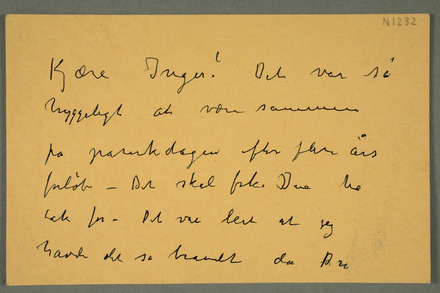 N1232
Kjære Inger! Det var så
hyggeligt at være sammen
på parerkdagen efter flere års
forløb – Det skal De ha
tak for – Det var leit at jeg
havde det så travelt da De